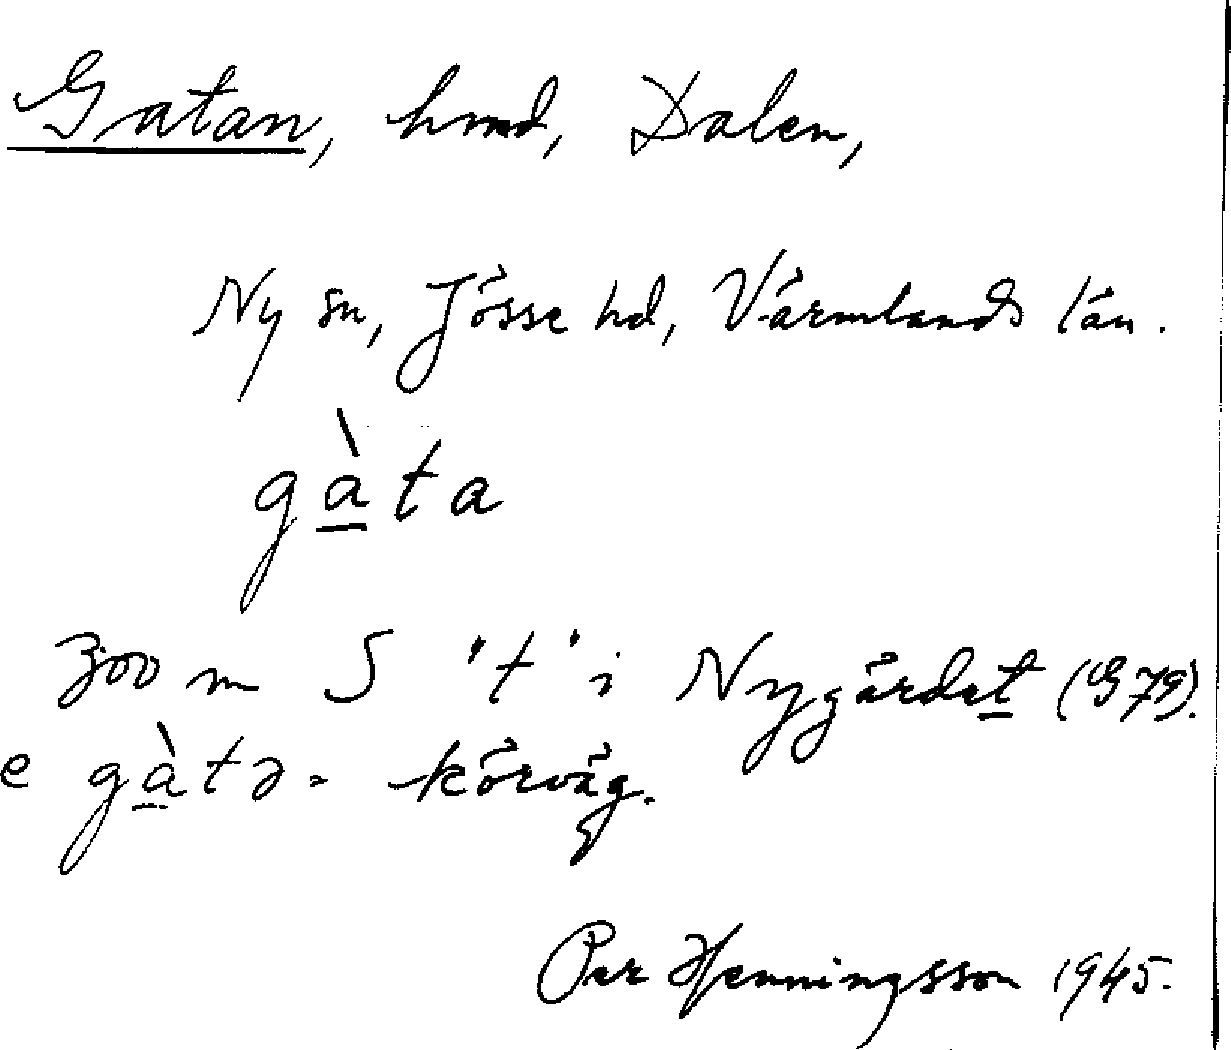 Gatan, hmd, Dalen,
Ny sn, Jösse hd, Värmlands län.
gàta
300 m S "t" i Nygårdet (G 79).
e gàtə = körväg.
Per Henningsson 1945.